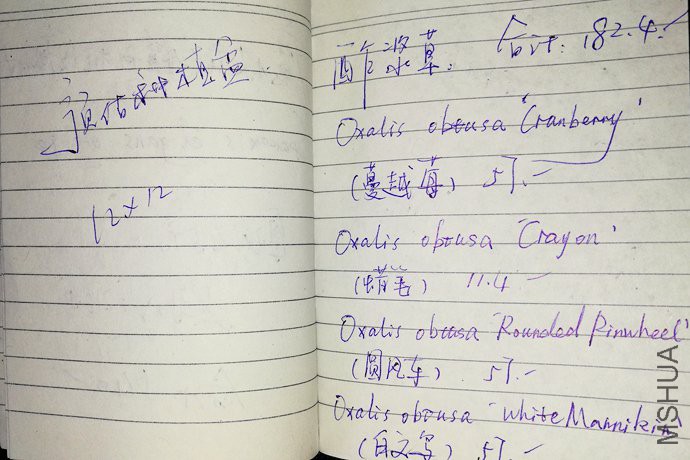 预估种植盒
12×12
酢浆草: 合计: 182.4.
Oxalis obtusa 'Cranberry'
(蔓越莓) 57.-
Oxalis obtusa 'Crayon'
(蜡笔) 11.4 -
Oxalis obtusa 'Rounded Pinwheel'
(圆风车) 57.-
Oxalis obtusa 'White Mannikin'
(白文鸟) 57.-
MSHUA